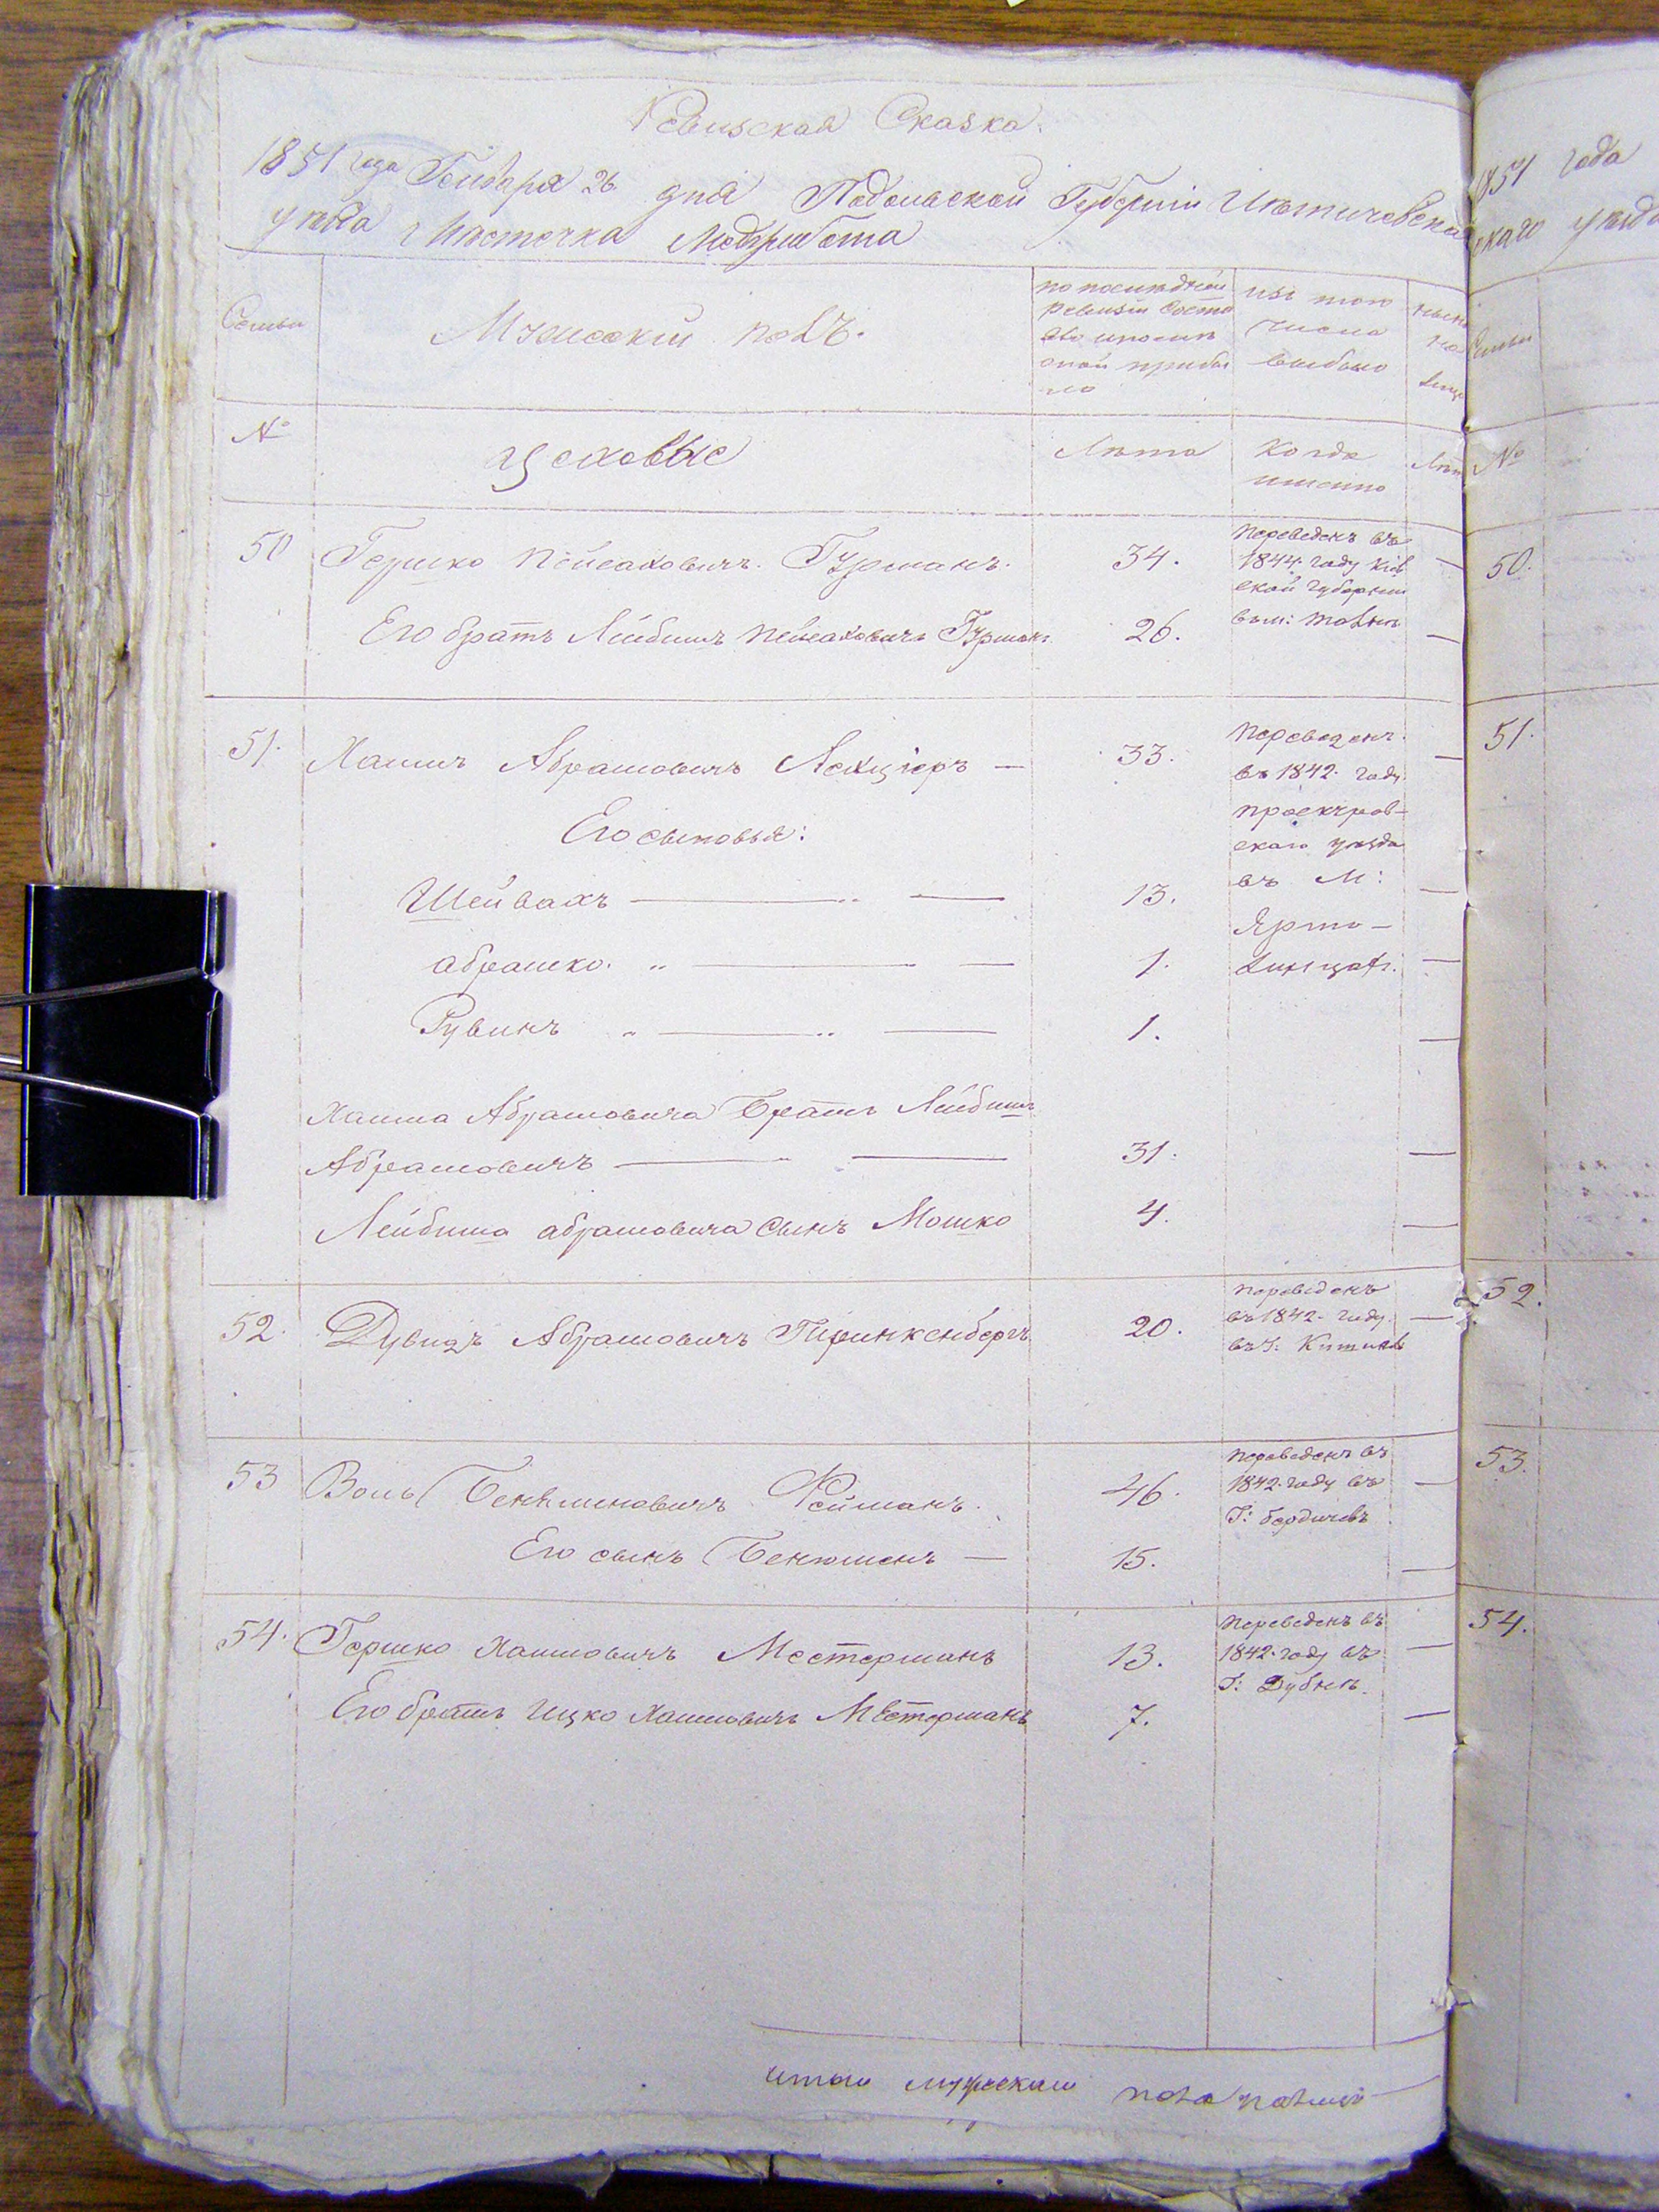 Ревизская Сказка.
1851 года Генваря 26 дня Подольской Губернии Летичевска
уезда Местечка Меджибожа
Семьи
Мужеский полъ.
по последней
Ревизии состо
яло и после
оной прибы
ло
изъ того
числа
выбыло
№
цеховые
Лета
Когда
именно
50 Гершко Пейсаховичъ Гурманъ. 34.
Переведенъ въ
1844 году Кіев
ской губерніи
Его братъ Лейбишъ Пейсаховичъ Гурманъ 26.
51. Хаимъ Абрамовичъ 33.
Переведенъ
въ 1842 году
проскуров-
скаго уезда
въ М:
Ярмо-
линцахъ.
Его сыновья:
Шейвахъ 13.
Абрамко 1.
Рувинъ 1.
Хаима Абрамовича Братъ Лейбишъ
Абрамовичъ 31.
Лейбиша Абрамовича сынъ Мошко 4.
52. Дувидъ Абрамовичъ 20.
Переведенъ
въ 1842 году
въ Г:
53 Воль Беняминовичъ Рейманъ. 46.
Переведенъ въ
1842 году въ
Г: Бердичевъ
Его сынъ Бенюменъ 15.
54. Гершко Хаимовичъ Местерманъ 13.
Переведенъ въ
1842 году въ
Г: Дубнъ
Его братъ Ицко Хаимовичъ Местерманъ 7.
итого мужескаго пола
1851 года
скаго уезда
Семьи
№
50.
51.
52.
53.
54.